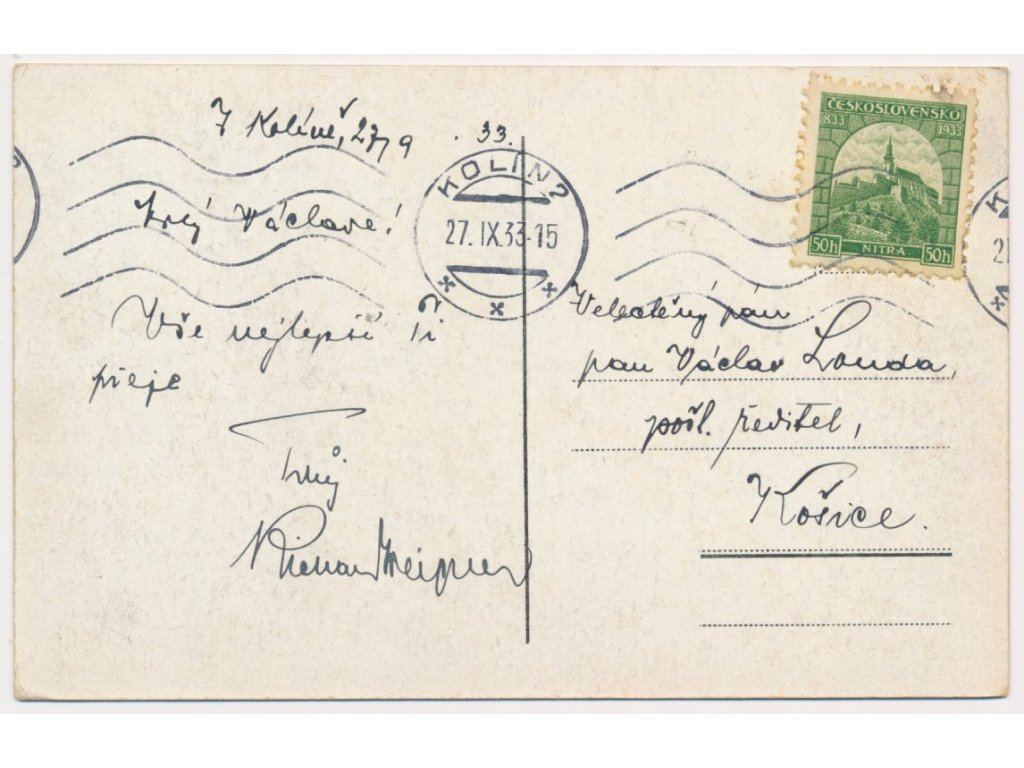 V Kolíně, 27/9 .33.
Milý Václave!
Vše nejlepší Ti
přeje
Tvůj
Richard
KOLÍN 2
27. IX.33-15
ČESKOSLOVENSKO
833 1933
50h NITRA 50h
Veléctěný pán
pan Václav Louda,
pošt. ředitel,
V Košice.